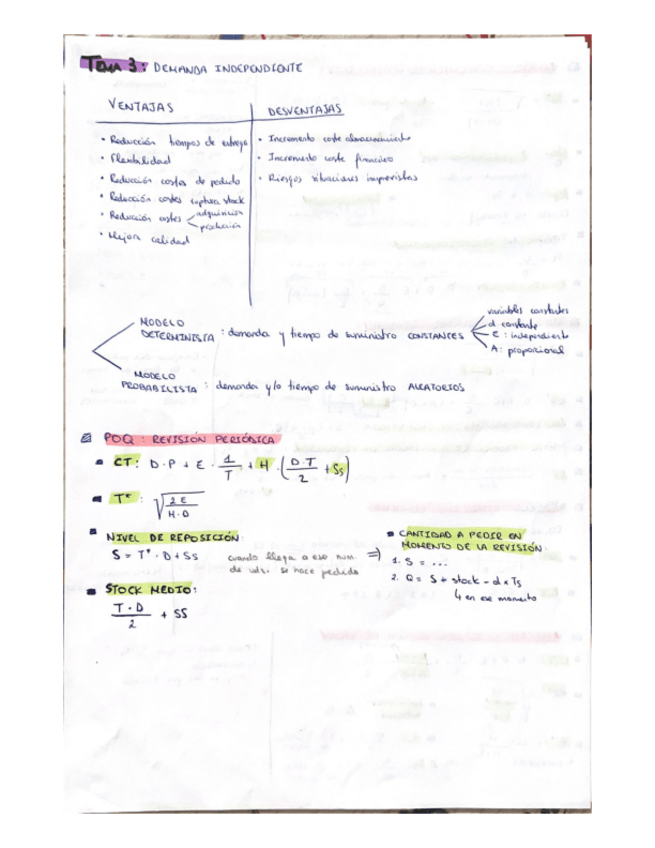 Tema 3: DEMANDA INDEPENDIENTE
VENTAJAS
• Reducción tiempos de entrega
• Flexibilidad
• Reducción costes de pedido
• Reducción costes ruptura stock
• Reducción costes adquisición
producción
• Mejora calidad
DESVENTAJAS
• Incremento coste almacenamiento
• Incremento coste financiero
• Riesgos situaciones imprevistas
MODELO
DETERMINISTA : demanda y tiempo de suministro CONSTANTES
variables constantes
d constante
E : independiente
A : proporcional
MODELO
PROBABILISTA : demanda y/o tiempo de suministro ALEATORIOS
POQ : REVISIÓN PERIÓDICA
CT: D·P + E · 1/T + H · (D·T/2 + Ss)
T* : √(2E/H·D)
NIVEL DE REPOSICIÓN:
S = T* · D + SS
cuando llega a ese num.
de uds. se hace pedido
⇒)
CANTIDAD A PEDIR EN
MOMENTO DE LA REVISIÓN.
1. S = ...
2. Q = S + stock - d x Ts
↳ en ese momento
STOCK MEDIO:
T·D/2 + SS